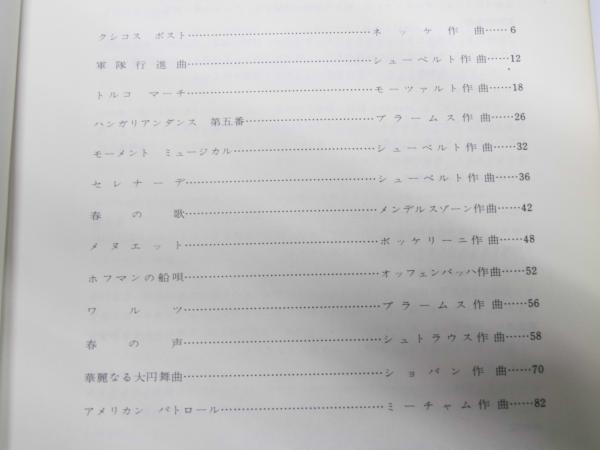 クシコス ポスト……………………………ネッケ作曲……6
軍隊行進曲……………………………シューベルト作曲……12
トルコ マーチ……………………………モーツァルト作曲……18
ハンガリアンダンス 第五番……………………ブラームス作曲……26
モーメント ミュージカル……………………シューベルト作曲……32
セレナーデ……………………………シューベルト作曲……36
春の歌……………………………メンデルスゾーン作曲……42
メヌエット……………………………ボッケリーニ作曲……48
ホフマンの船唄……………………………オッフェンバッハ作曲……52
ワルツ……………………………ブラームス作曲……56
春の声……………………………シュトラウス作曲……58
華麗なる大円舞曲……………………………ショパン作曲……70
アメリカン パトロール……………………ミーチャム作曲……82